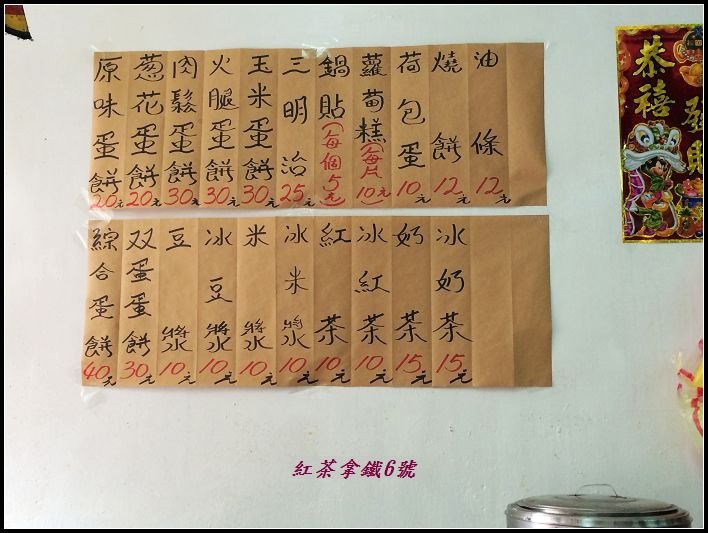 原味蛋餅20元
葱花蛋餅20元
肉鬆蛋餅30元
火腿蛋餅30元
玉米蛋餅30元
三明治25元
鍋貼(每個5元)
蘿蔔糕(每片10元)
荷包蛋10元
燒餅12元
油條12元
綜合蛋餅40元
双蛋蛋餅30元
豆漿10元
冰豆漿10元
米漿10元
冰米漿10元
紅茶10元
冰紅茶10元
奶茶15元
冰奶茶15元
恭禧
發財
紅茶拿鐵6號